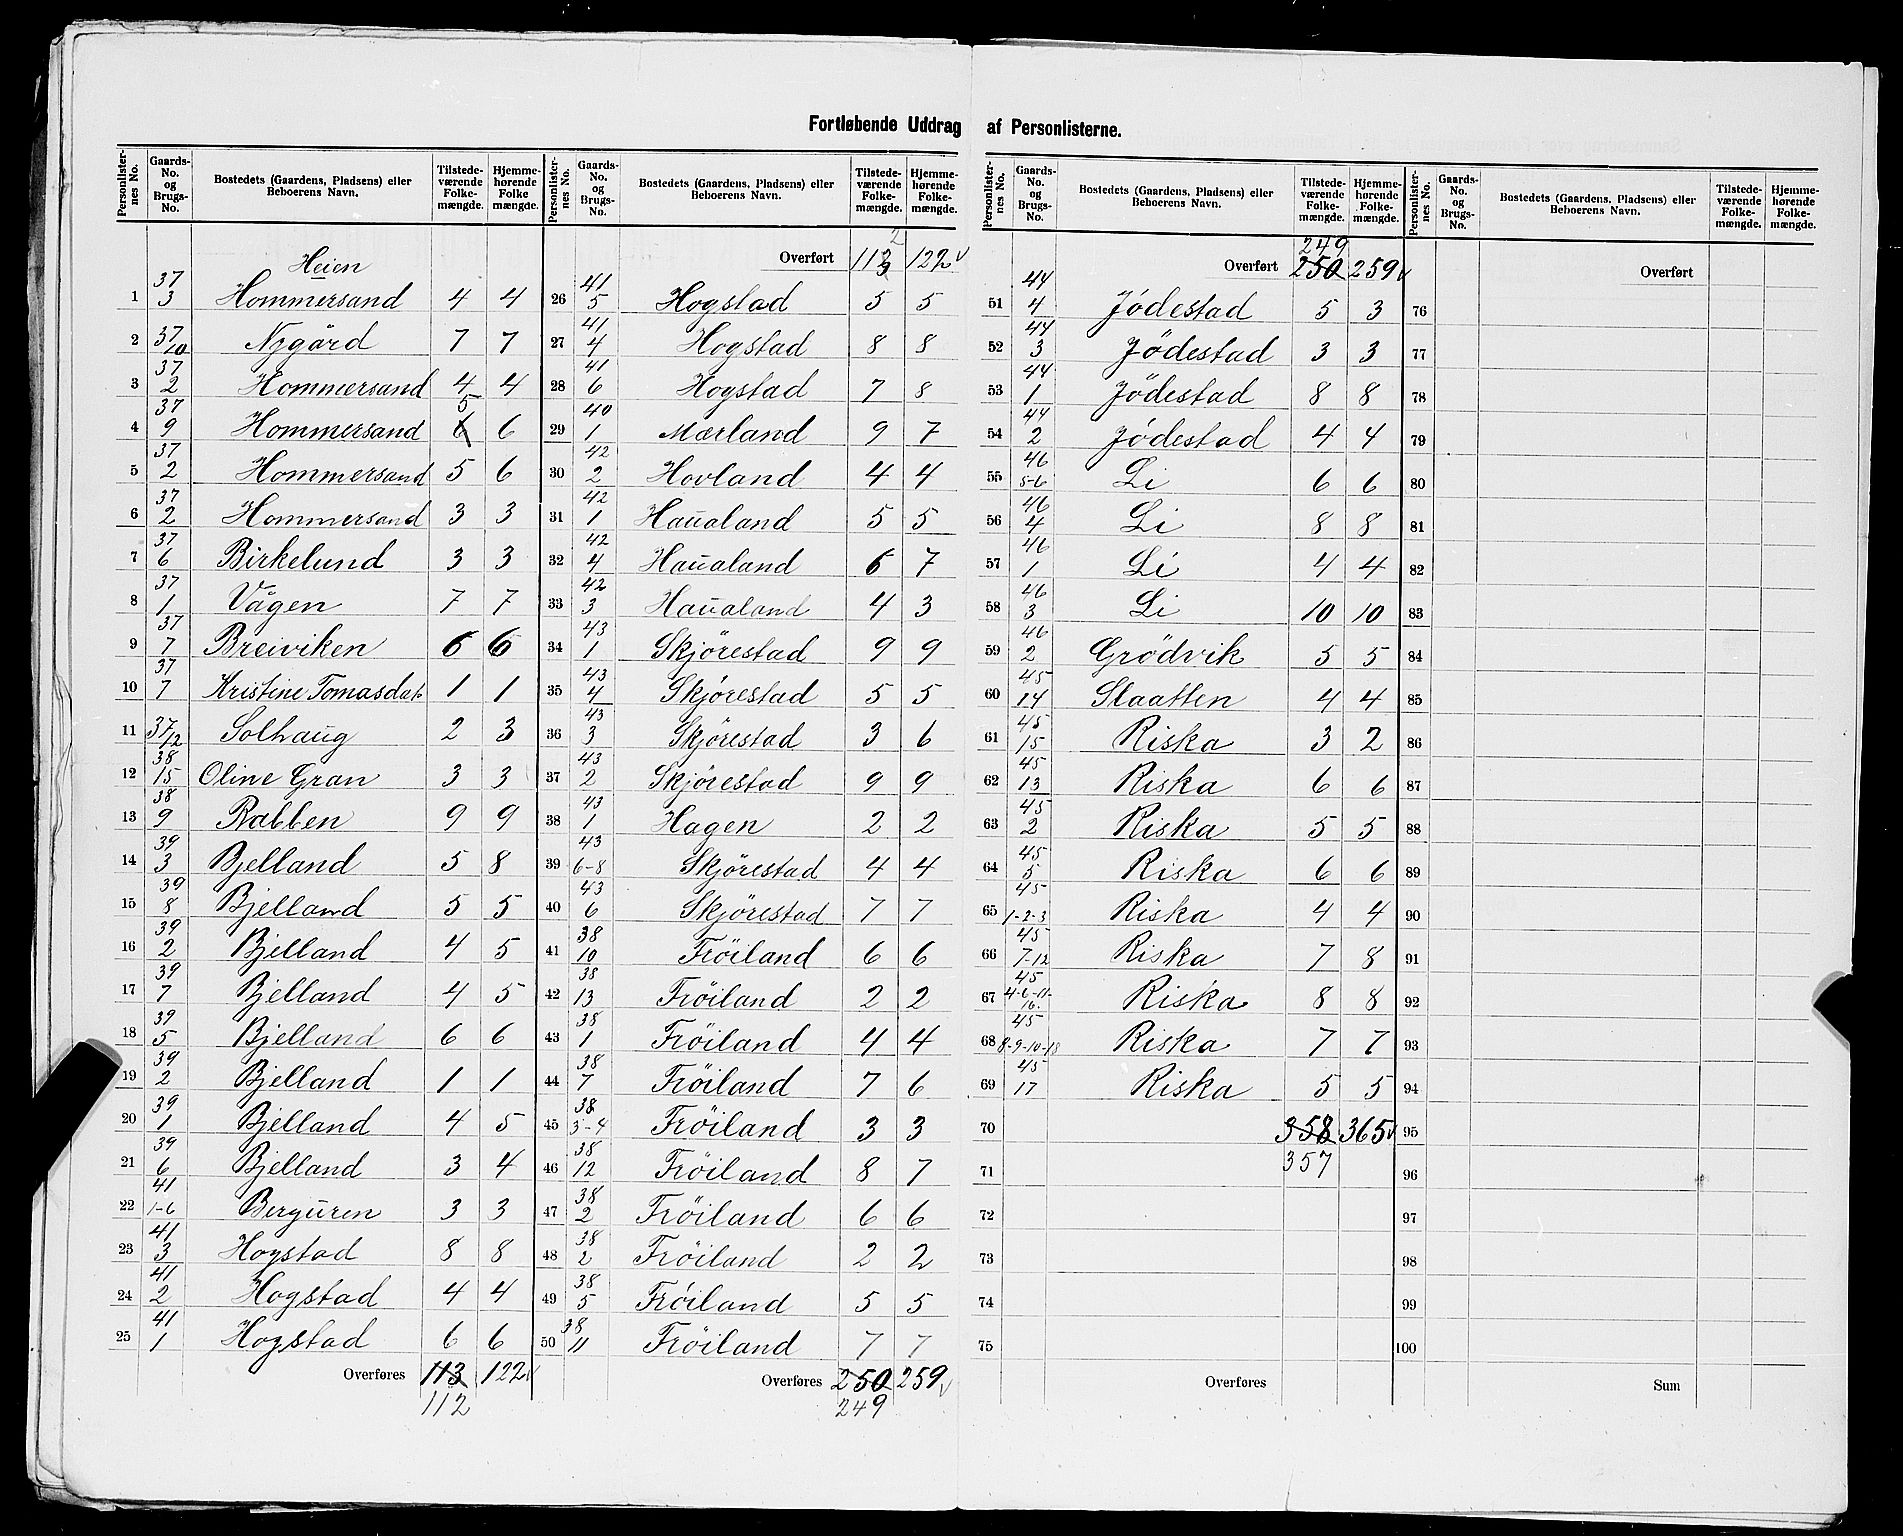 Fortløbende Uddrag af Personlisterne.
Personlister-nes No. | Gaards-No. og Brugs-No. | Bostedets (Gaardens, Pladsens) eller Beboerens Navn. | Tilstede-værende Folke-mængde. | Hjemme-hørende Folke mængde.
Heien
1 | 37 3 | Hommersand | 4 | 4
2 | 37/10 | Nygård | 7 | 7
3 | 37 2 | Hommersand | 4 | 4
4 | 37 9 | Hommersand | 6 5 | 6
5 | 37 2 | Hommersand | 5 | 6
6 | 37 2 | Hommersand | 3 | 3
7 | 37 6 | Birkelund | 3 | 3
8 | 37 1 | Vågen | 7 | 7
9 | 37 7 | Breiviken | 6 | 6
10 | 37 7 | Kristine Tomasdat. | 1 | 1
11 | 37/12 | Solhaug | 2 | 3
12 | 38 15 | Oline Gran | 3 | 3
13 | 38 9 | Rabben | 9 | 9
14 | 39 3 | Bjelland | 5 | 8
15 | 39 8 | Bjelland | 5 | 5
16 | 39 2 | Bjelland | 4 | 5
17 | 39 7 | Bjelland | 4 | 5
18 | 39 5 | Bjelland | 6 | 6
19 | 39 2 | Bjelland | 1 | 1
20 | 39 1 | Bjelland | 4 | 5
21 | 39 6 | Bjelland | 3 | 4
22 | 41 1-6 | Berguren | 3 | 3
23 | 41 3 | Hogstad | 8 | 8
24 | 41 2 | Hogstad | 4 | 4
25 | 41 1 | Hogstad | 6 | 6
Overføres | 113 | 122 v
112
Personlister-nes No. | Gaards-No. og Brugs-No. | Bostedets (Gaardens, Pladsens) eller Beboerens Navn. | Tilstede-værende Folke-mængde. | Hjemme-hørende Folke-mængde.
Overført | 113 2 | 122 v
26 | 41 5 | Hogstad | 5 | 5
27 | 41 4 | Hogstad | 8 | 8
28 | 41 6 | Hogstad | 7 | 8
29 | 40 1 | Mærland | 9 | 7
30 | 42 2 | Hovland | 4 | 4
31 | 42 1 | Haualand | 5 | 5
32 | 42 4 | Haualand | 6 | 7
33 | 42 3 | Haualand | 4 | 3
34 | 43 1 | Skjørestad | 9 | 9
35 | 43 4 | Skjørestad | 5 | 5
36 | 43 3 | Skjørestad | 3 | 6
37 | 43 2 | Skjørestad | 9 | 9
38 | 43 1 | Hagen | 2 | 2
39 | 43 6-8 | Skjörestad | 4 | 4
40 | 43 6 | Skjörestad | 7 | 7
41 | 38 10 | Fröiland | 6 | 6
42 | 38 13 | Fröiland | 2 | 2
43 | 38 1 | Fröiland | 4 | 4
44 | 38 7 | Fröiland | 7 | 6
45 | 38 3-4 | Fröiland | 3 | 3
46 | 38 12 | Fröiland | 8 | 7
47 | 38 2 | Fröiland | 6 | 6
48 | 38 2 | Fröiland | 2 | 2
49 | 38 5 | Fröiland | 5 | 5
50 | 38 11 | Fröiland | 7 | 7
Overføres | 250 | 259 v
249
Personlister-nes No. | Gaards-No. og Brugs-No. | Bostedets (Gaardens, Pladsens) eller Beboerens Navn. | Tilstede-værende Folke-mængde. | Hjemme-hørende Folke-mængde.
249
Overført | 250 | 259 v
51 | 44 4 | Jödestad | 5 | 3
52 | 44 3 | Jödestad | 3 | 3
53 | 44 1 | Jödestad | 8 | 8
54 | 44 2 | Jödestad | 4 | 4
55 | 46 5-6 | Li | 6 | 6
56 | 46 4 | Li | 8 | 8
57 | 46 1 | Li | 4 | 4
58 | 46 3 | Li | 10 | 10
59 | 46 2 | Grödvik | 5 | 5
60 | 45 14 | Slaatten | 4 | 4
61 | 45 15 | Riska | 3 | 2
62 | 45 13 | Riska | 6 | 6
63 | 45 2 | Riska | 5 | 5
64 | 45 5 | Riska | 6 | 6
65 | 45 1-2-3 | Riska | 4 | 4
66 | 45 7-12 | Riska | 7 | 8
67 | 45 4-6-11-16. | Riska | 8 | 8
68 | 45 8-9-10-18 | Riska | 7 | 7
69 | 45 17 | Riska | 5 | 5
70 | 358 | 365 v
71 | 357
72
73
74
75
Overføres
Personlister-nes No. | Gaards-No. og Brugs-No. | Bostedets (Gaardens, Pladsens) eller Beboerens Navn. | Tilstede-værende Folke-mængde. | Hjemme-hørende Folke-mængde.
Overført
76
77
78
79
80
81
82
83
84
85
86
87
88
89
90
91
92
93
94
95
96
97
98
99
100
Sum